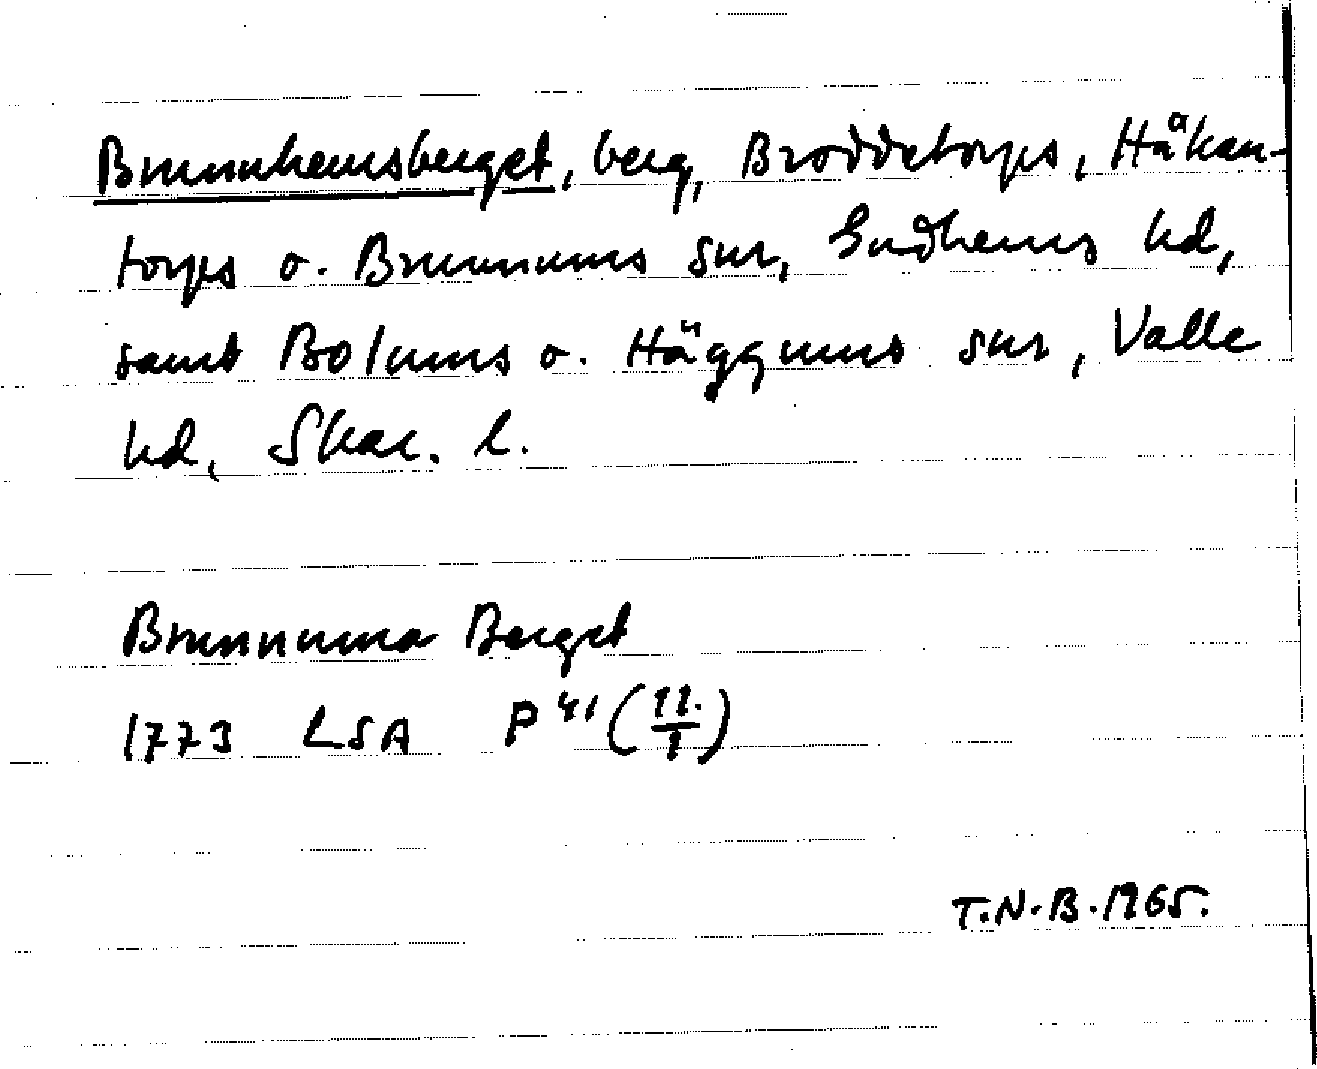 Brunnhemsberget, berg, Broddetorps, Håkan-
torps o. Brunnums snr, Gudhems hd,
samt Bolums o. Häggums snr, Valle
hd, Skar. l.
Brunnuma Berget
1773 LSA P 41 (11./1)
T.N.B. 1965.